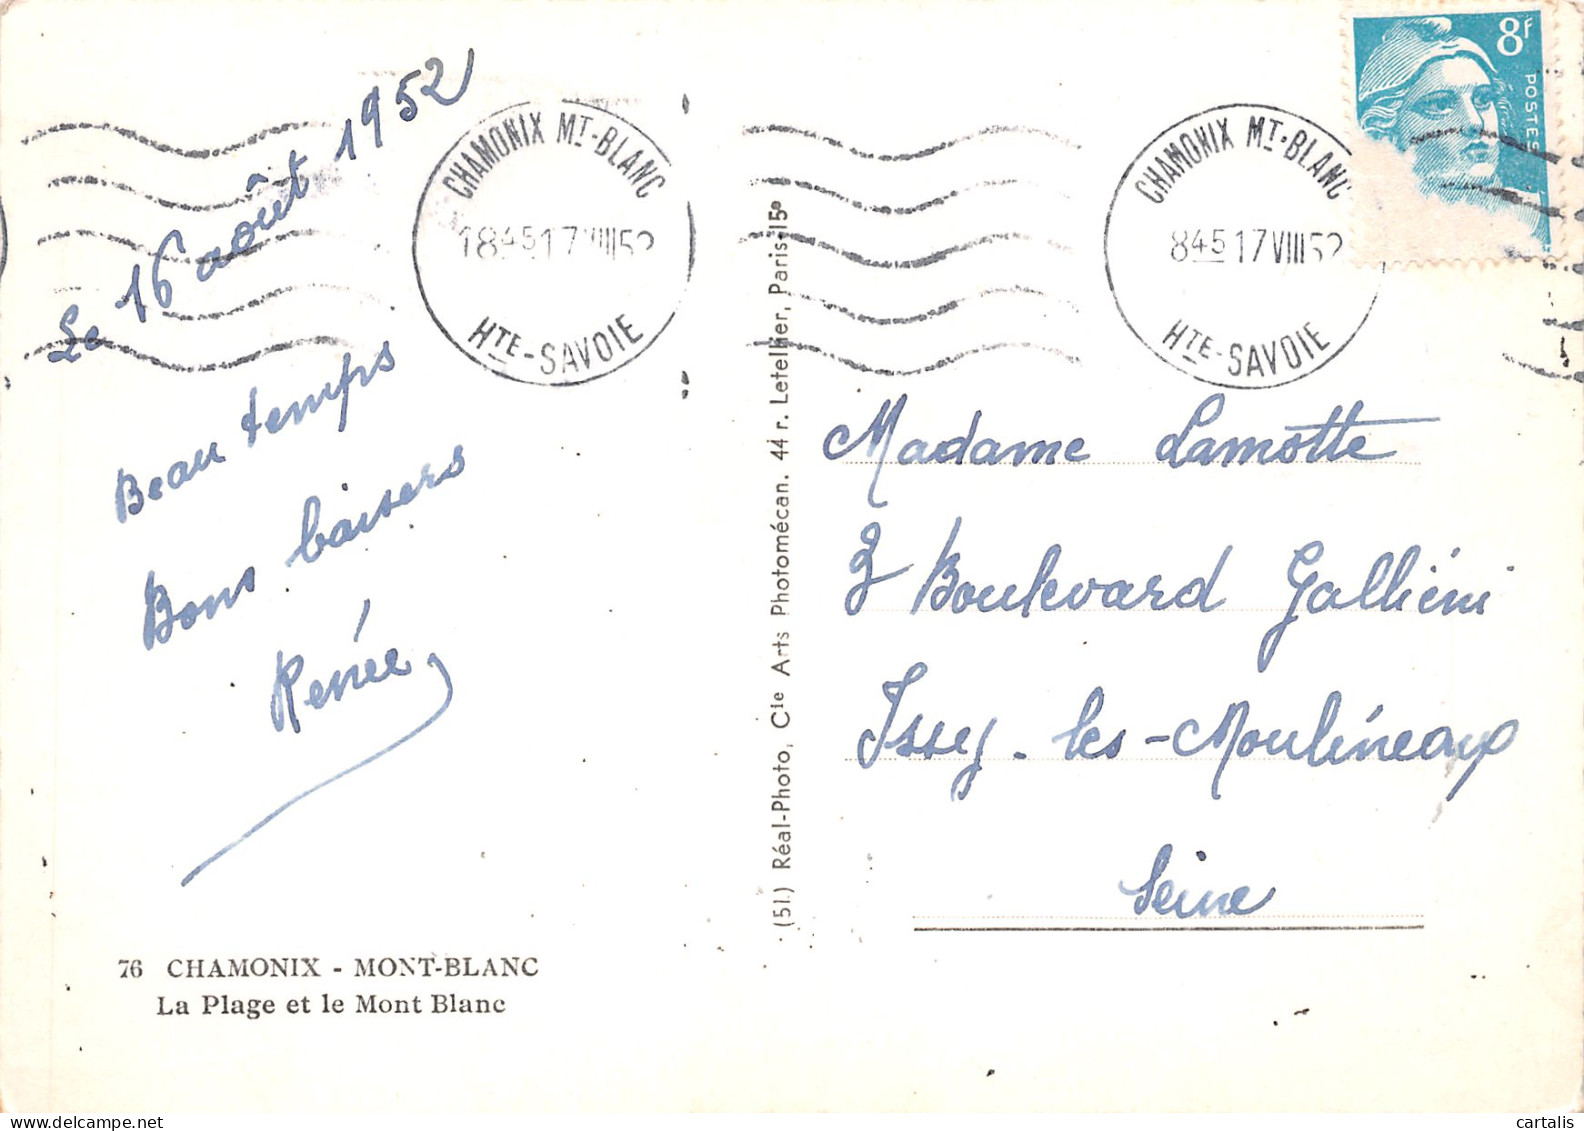 Le 16 août 1952
Beau temps
Bons baisers
Renée
76 CHAMONIX - MONT-BLANC
La Plage et le Mont Blanc
CHAMONIX MT-BLANC
1845 17 VIII 52
HTE-SAVOIE
(51.) Réal-Photo, Cie Arts Photomécan. 44 r. Letellier, Paris-15e
CHAMONIX MT-BLANC
845 17 VIII 52
HTE-SAVOIE
8F
POSTES
Madame Lamotte
Boulevard Galliéni
Issy-les-Moulineaux
Seine
cartalis
delcampe.net